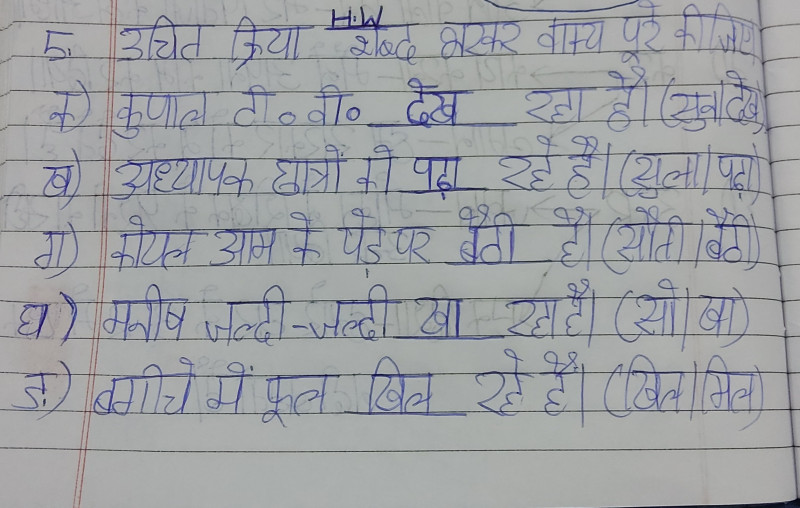 H.W
5. उचित क्रिया शब्द भरकर वाक्य पूरे कीजिए
क) कुणाल टी० वी० देख रहा है। (सुन/देख)
ख) अध्यापक छात्रों को पढ़ा रहे हैं। (सुला/पढ़ा)
ग) कोयल आम के पेड़ पर बैठी है। (सोती/बैठी)
घ) मनीष जल्दी-जल्दी खा रहा है। (सो/खा)
ङ) बगीचे में फूल खिल रहे हैं। (खिल/मिल)